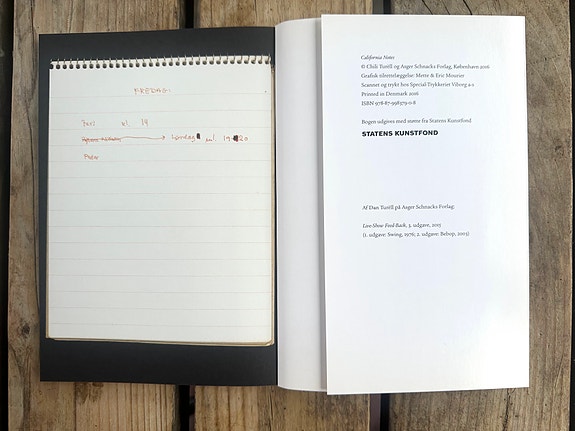 FREDAG.
kl. 19
Lørdag kl. 19 20
Peter
California Notes
© Chili Turèll og Asger Schnacks Forlag, København 2016
Grafisk tilrettelæggelse: Mette & Eric Mourier
Scannet og trykt hos Special-Trykkeriet Viborg a-s
Printed in Denmark 2016
ISBN 978-87-998579-0-8
Bogen udgives med støtte fra Statens Kunstfond
STATENS KUNSTFOND
Af Dan Turèll på Asger Schnacks Forlag:
Live-Show Feed Back, 3. udgave, 2015
(1. udgave: Swing, 1976; 2. udgave: Bebop, 2003)